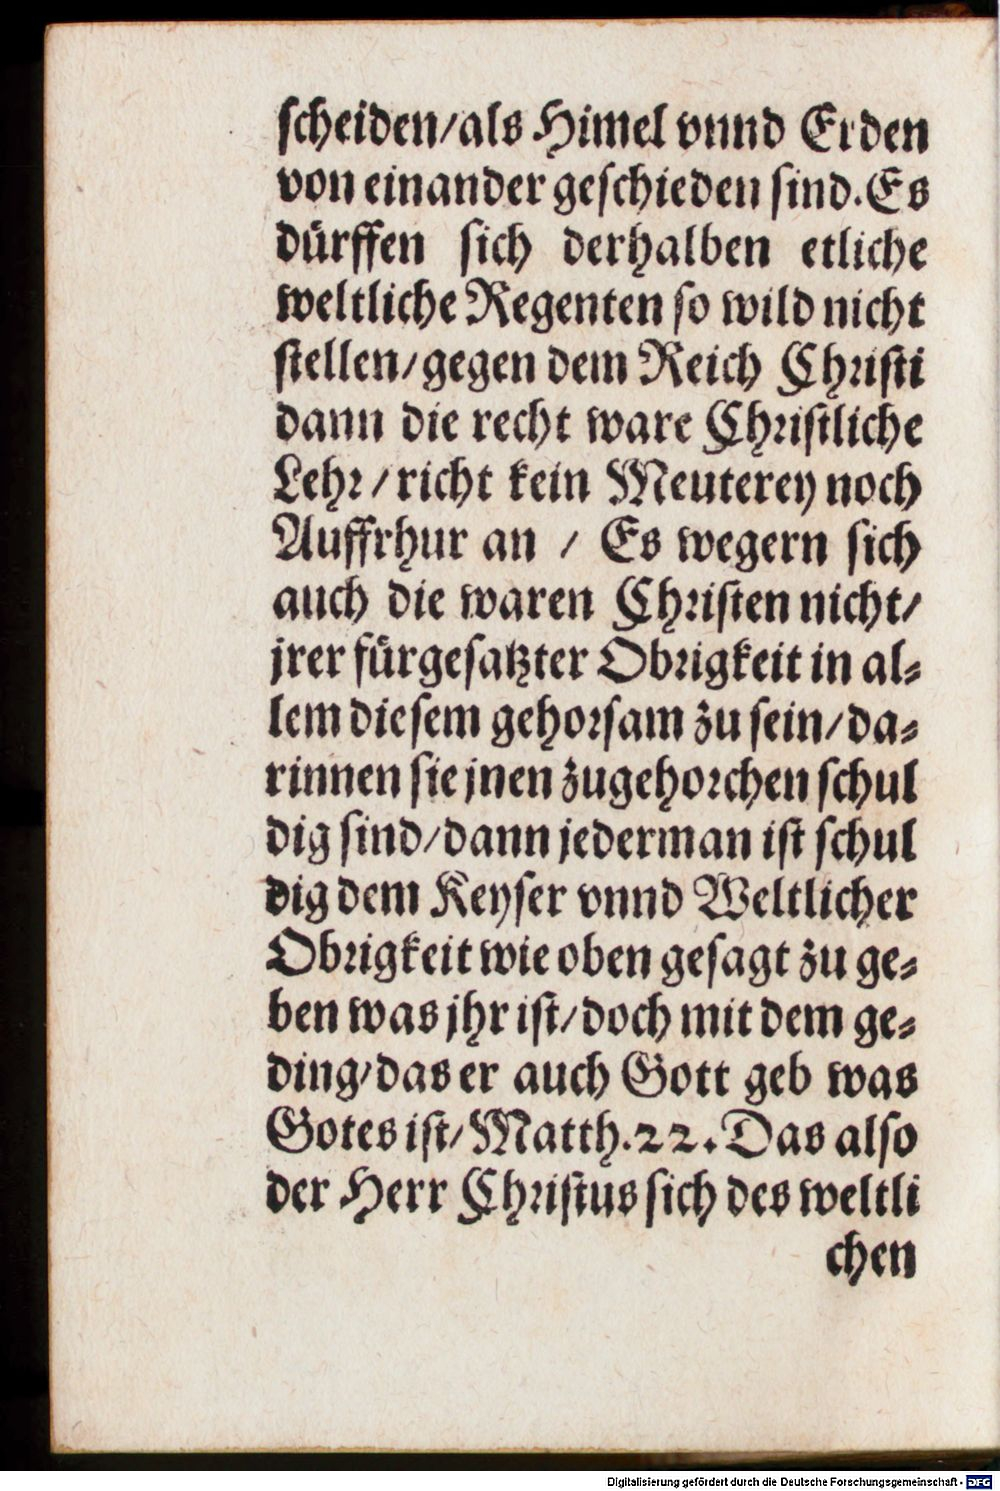 scheiden/als Himel vnnd Erden
von einander geschieden sind. Es
dürffen sich derhalben etliche
weltliche Regenten so wild nicht
stellen/gegen dem Reich Christi
dann die recht ware Christliche
Lehr/richt kein Meuterey noch
Auffrhur an / Es wegern sich
auch die waren Christen nicht/
jrer fürgesatzter Obrigkeit in al⸗
lem diesem gehorsam zu sein/da⸗
rinnen sie jnen zugehorchen schul
dig sind/dann jederman ist schul
dig dem Keyser vnnd Weltlicher
Obrigkeit wie oben gesagt zu ge⸗
ben was jhr ist/doch mit dem ge⸗
ding/das er auch Gott geb was
Gotes ist/Matth.22. Das also
der Herr Christus sich des weltli
chen
Digitalisierung gefördert durch die Deutsche Forschungsgemeinschaft - DFG